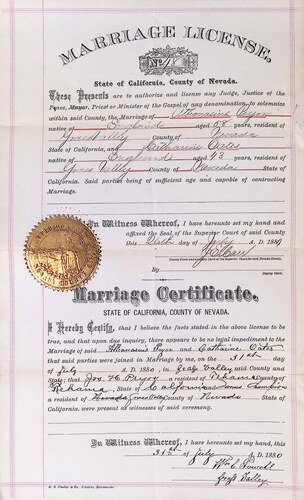 MARRIAGE LICENSE.
No 18
State of California, County of Nevada.
These Presents are to authorize and license any Judge, Justice of the
Peace, Mayor, Priest or Minister of the Gospel of any denomination, to solemnize
within said County, the Marriage of Athanasius
native of England aged 58 years, resident of
Grass Valley County of Nevada
State of California, and Catharine
native of aged 43 years, resident of
Grass Valley County of Nevada
State of California. Said parties being of sufficient age and capable of contracting
Marriage.
In Witness Whereof, I have hereunto set my hand and
affixed the Seal of the Superior Court of said County
this day of July A.D. 1880
By
Deputy Clerk.
Marriage Certificate.
STATE OF CALIFORNIA, COUNTY OF NEVADA.
I Hereby Certify, that I believe the facts stated in the above license to be
true, and that upon due inquiry, there appears to be no legal impediment to the
Marriage of said Athanasius and Catharine
that said parties were joined in Marriage by me, on the 31st day
of July A.D. 1880, in Grass Valley said County and
State; that Jos. H. a resident of Tehama County
Tehama, State of California and
a resident of Grass Valley County of Nevada State of
were present as witnesses of said ceremony.
In Witness Whereof, I have hereunto set my hand, this
31st of July A.D. 1880
Wm C. Powell
Grass Valley